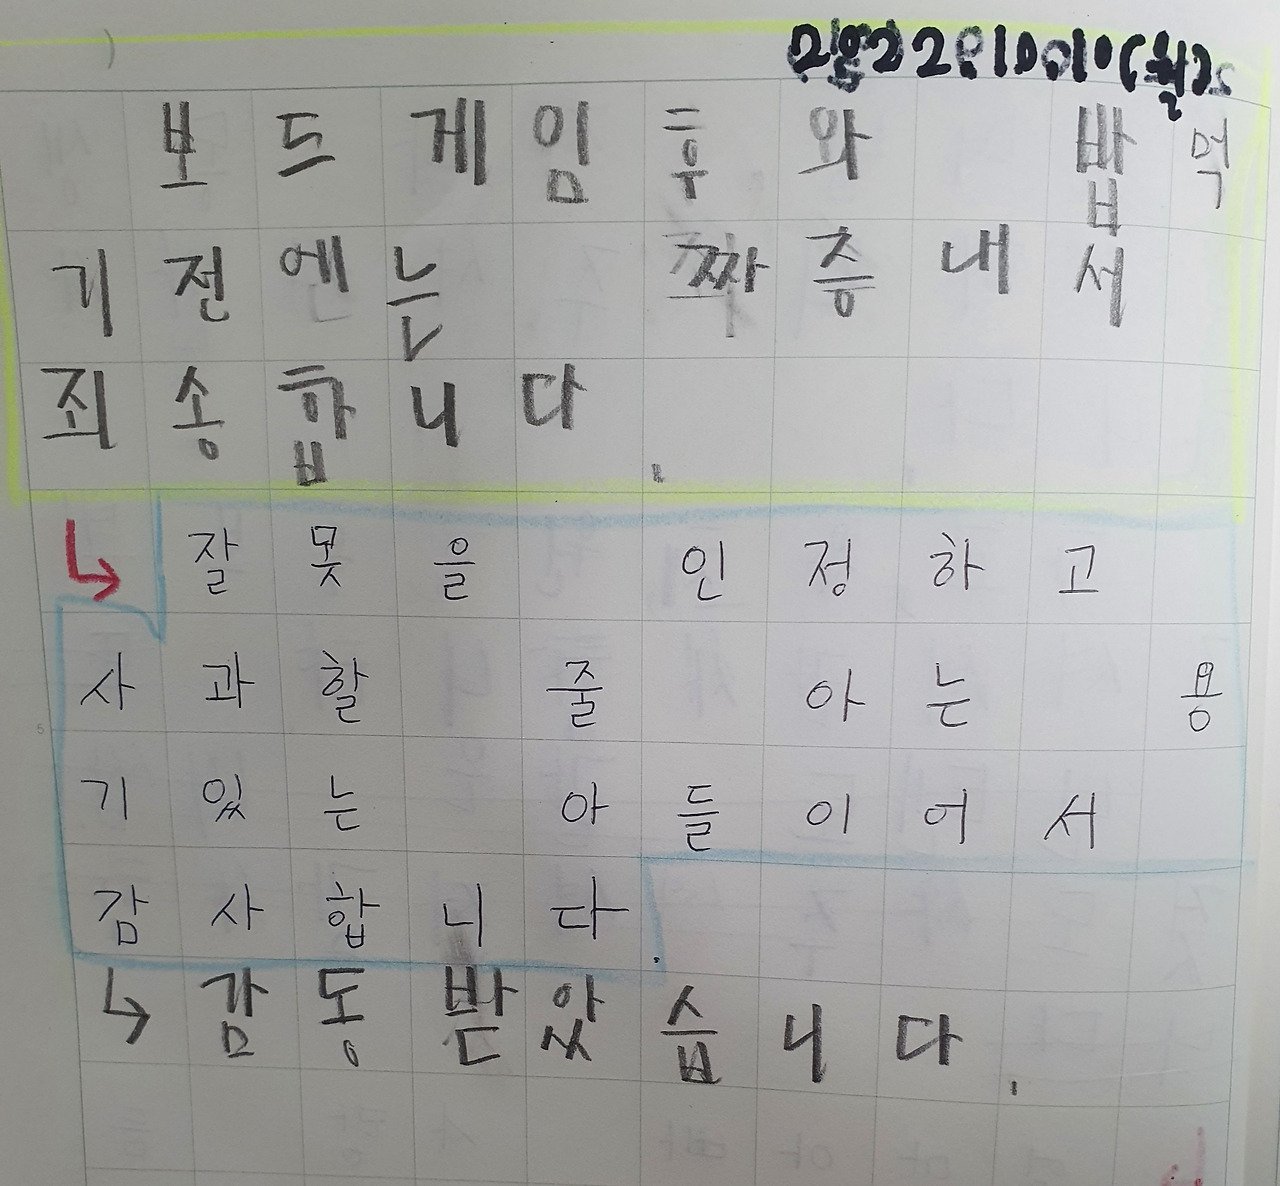 보드게임후와 밥먹
기전에는 짜증내서
죄송합니다.
↳ 잘못을 인정하고
사과할 줄 아는 용
기있는 아들이어서
감사합니다.
↳ 감동받았습니다.